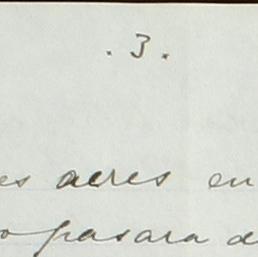 . 3 .
es aeres en
o pasara d